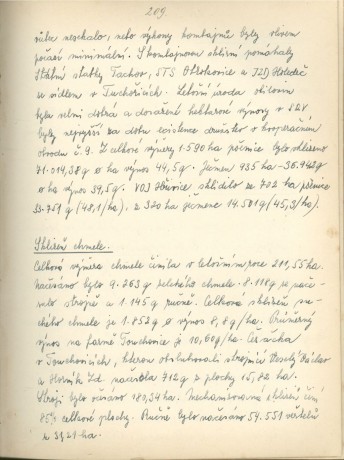 209
růtce neschalo, nebo výkony kombajnů byly vlivem
počasí minimální. S kombajnovou sklizní pomáhaly
Státní statky Tachov, STS Otrokovice a JZD Holedeč
se sídlem v Tuchořicích. Letošní úroda obilovin
byla velmi dobrá a dosažené hektarové výnosy v SZV
byly nejvyšší za dobu existence družstev v kooperačním
obvodu č. 9. Z celkové výměry 1.590 ha pšenice bylo sklizeno
71.014,38 q ø ha výnos 44,5 q. Ječmen 935 ha - 36.942 q
ø ha výnos 39,5 q. VOJ Hřivice sklidilo ze 702 ha pšenice
33.751 q (48,1/ha), z 320 ha ječmene 14.501 q (45,3/ha).
Sklizeň chmele.
Celková výměra chmele činila v letošním roce 211,55 ha.
Načesáno bylo 9.263 q zeleného chmele - 8.118 q se nače-
salo strojně a 1.145 q ručně. Celková sklizeň su-
chého chmele je 1.852 q ø výnos 8,8 q/ha. Průměrný
výnos na farmě Tuchořice je 10,60 q/ha. Česačka
v Tuchořicích, kterou obsluhovali strojníci Veselý Václav
a Horník Zd. načesala 712 q z plochy 15,82 ha.
Stroji bylo očesáno 180,34 ha. Mechanizovaná sklizeň činí
85% celkové plochy. Ručně bylo načesáno 54.551 věrtelů
z 31,21 ha.